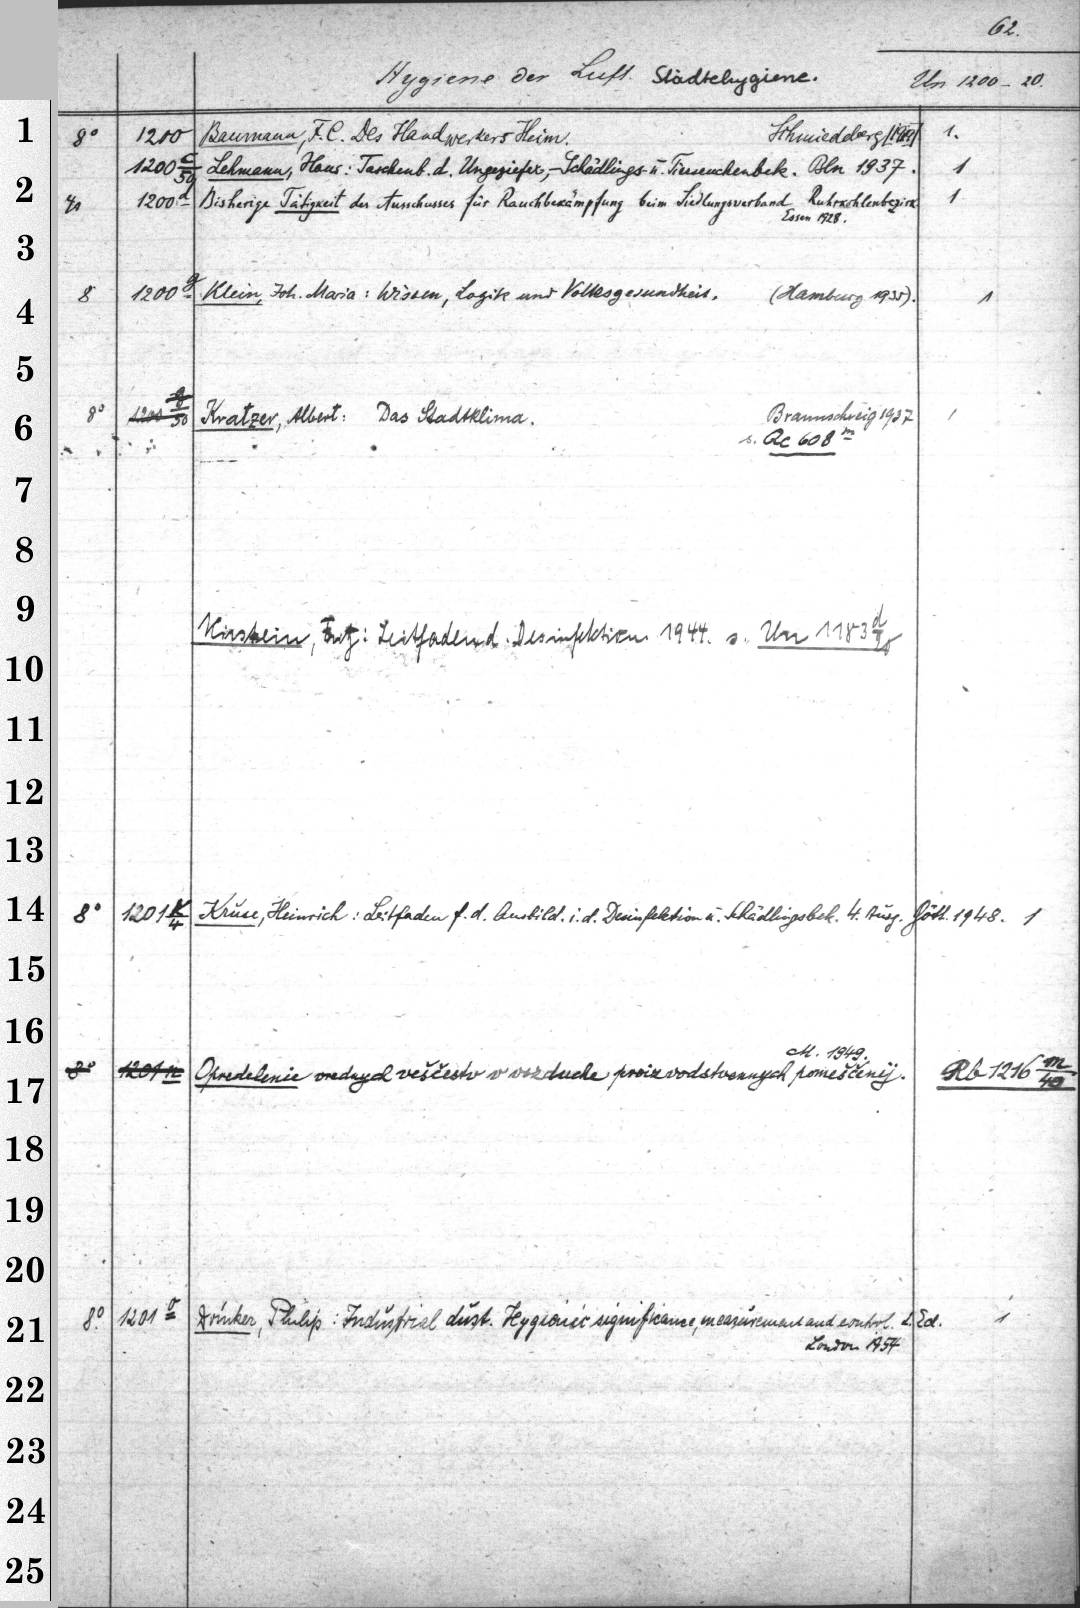 62.
Hygiene der Luft. Städtehygiene. Un 1200-20.
1 8° 1200 Baumann, F. C. Des Handwerkers Heim. Schmiedeberg 1.
1200 c/50 Lehmann, Hans: Taschenb. d. Ungeziefer-, Schädlings- u. Tierseuchenbek. Bln 1937. 1
2 4° 1200 d Bisherige Tätigkeit des Ausschusses für Rauchbekämpfung beim Siedlungsverband Ruhrkohlenbezirk 1
Essen 1928.
3
8 1200 g Klein, Joh. Maria: Wissen, Logik und Volksgesundheit. (Hamburg 1935). 1
4
5
8° 1200 g/50 Kratzer, Albert: Das Stadtklima. Braunschweig 1937 1
6 s. Rc 608 m
7
8
9
Kirstein, Fritz: Leitfaden d. Desinfektion 1944. s. Un 1183 d
10
11
12
13
14 8° 1201 k/4 Kruse, Heinrich: Leitfaden f. d. Ausbild. i. d. Desinfektion u. Schädlingsbek. 4. Ausg. Gött. 1948. 1
15
16
M. 1949.
8° 1201 n Opredelenie vrednych veščestv v vozduche proizvodstvennych pomeščenij. Rb 1216 m/40
17
18
19
20
8° 1201 o Drinker, Philip: Industrial dust. Hygienic significance, measurement and control. 2. Ed. 1
21
London 1954
22
23
24
25